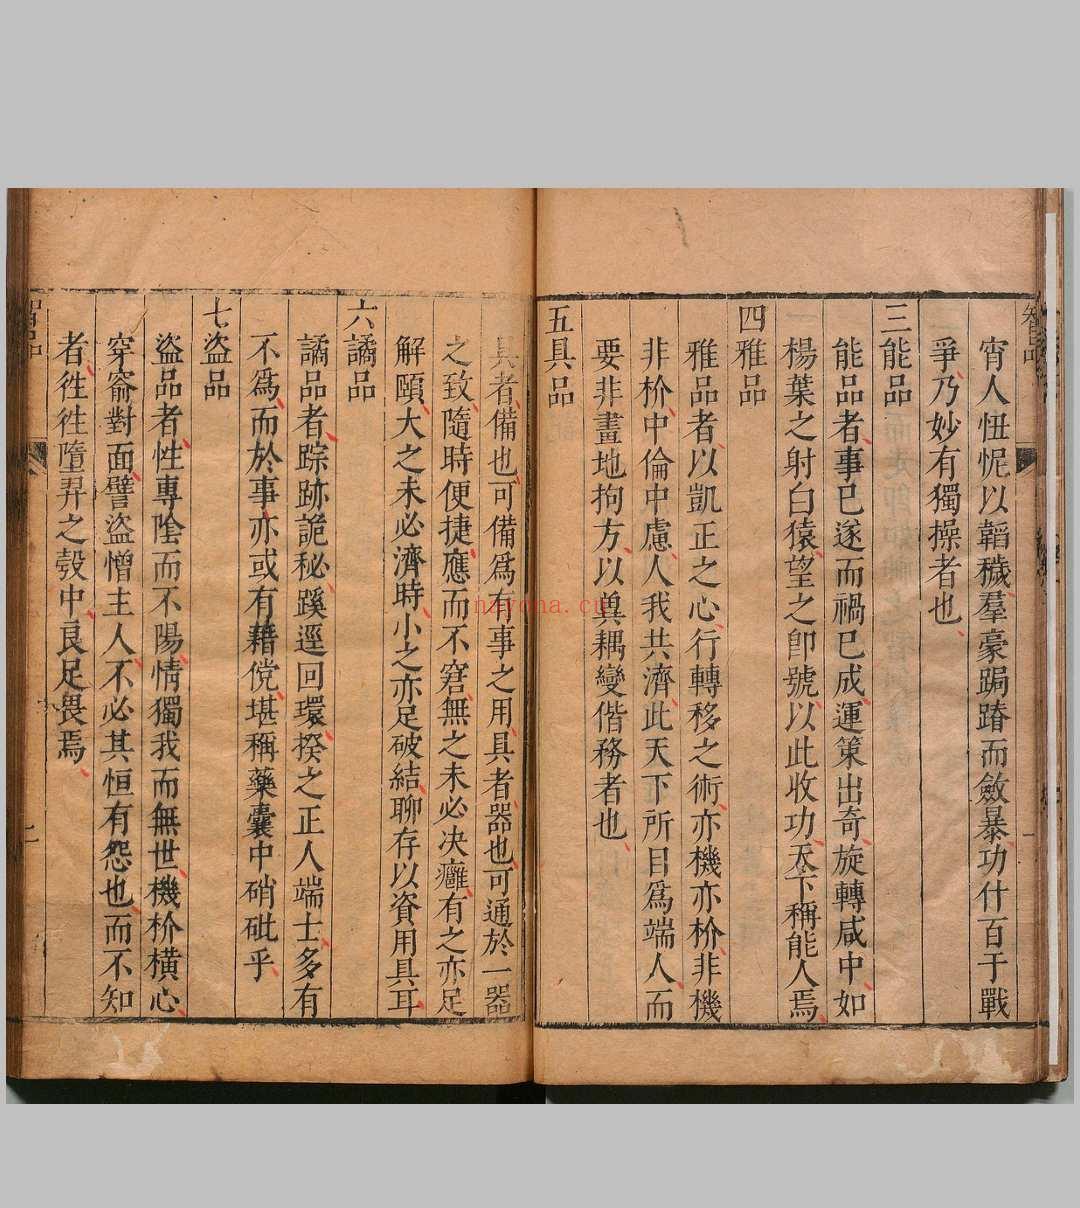 智品
宵人忸怩以韜穢羣豪跼蹐而斂暴功什百于戰
爭乃妙有獨操者也
三能品
能品者事已遂而禍已成運策出奇旋轉咸中如
楊葉之射白猿望之卽號以此收功天下稱能人焉
四雅品
雅品者以凱正之心行轉移之術亦機亦枌非機
非枌中倫中慮人我共濟此天下所目爲端人而
要非畫地拘方以冀耦變偕務者也
五具品
具者備也可備爲有事之用具者器也可通於一器
之致隨時便捷應而不窘無之未必决癰有之亦足
解頤大之未必濟時小之亦足破結聊存以資用具耳
六譎品
譎品者踪跡詭秘蹊逕回環揆之正人端士多有
不爲而於事亦或有藉儻堪稱藥囊中硝砒乎
七盜品
盜品者性專陰而不陽情獨我而無世機枌橫心
穿窬對面譬盜憎主人不必其恒有怨也而不知
者徃徃墮羿之彀中良足畏焉
nayona.cn